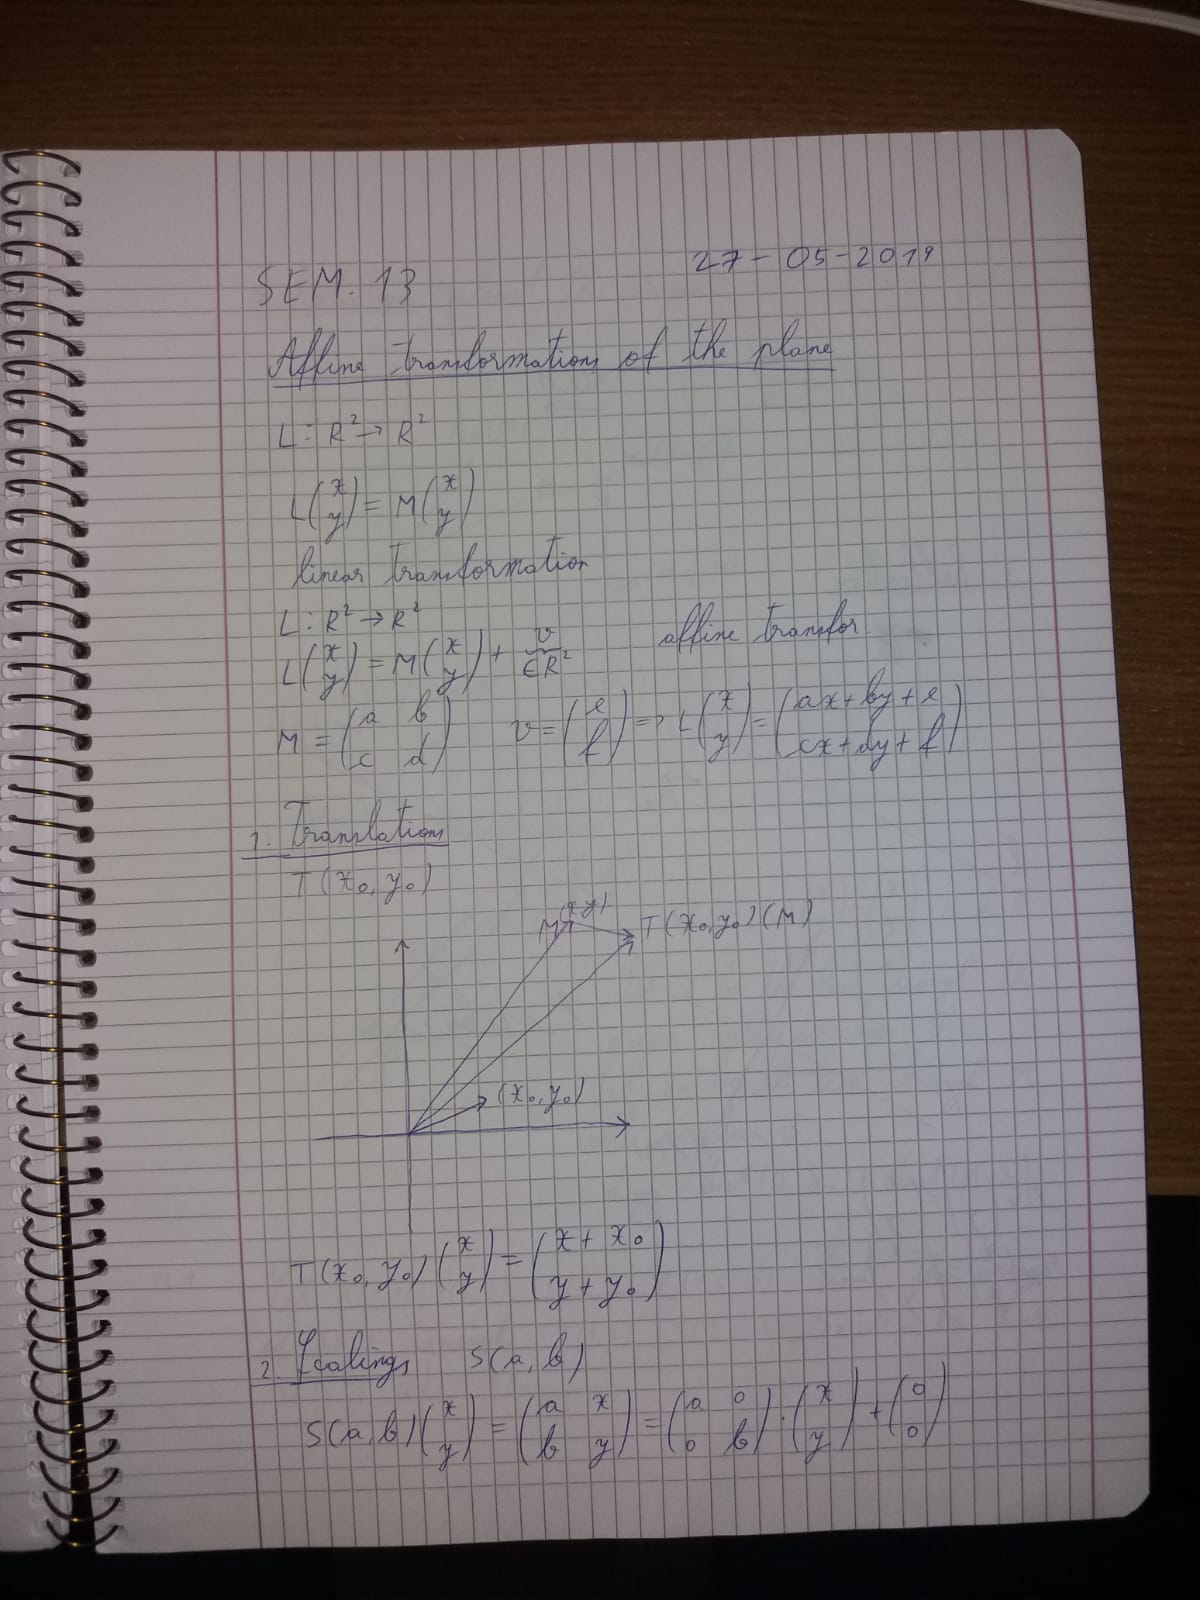 27-05-2019
SEM. 13
Affine transformations of the plane
L: R² → R²
L(x y) = M(x y)
linear transformation
L: R² → R²
L(x y) = M(x y) + v ∈ R² affine transfor.
M = (a b c d) v = (e f) => L(x y) = (ax+by+e cx+dy+f)
1. Translations
T(x₀, y₀)
M(x,y) T(x₀,y₀)(M)
(x₀, y₀)
T(x₀, y₀)(x y) = (x + x₀ y + y₀)
2. Scalings S(a, b)
S(a,b)(x y) = (a x b y) = (a 0 0 b) · (x y) + (0 0)